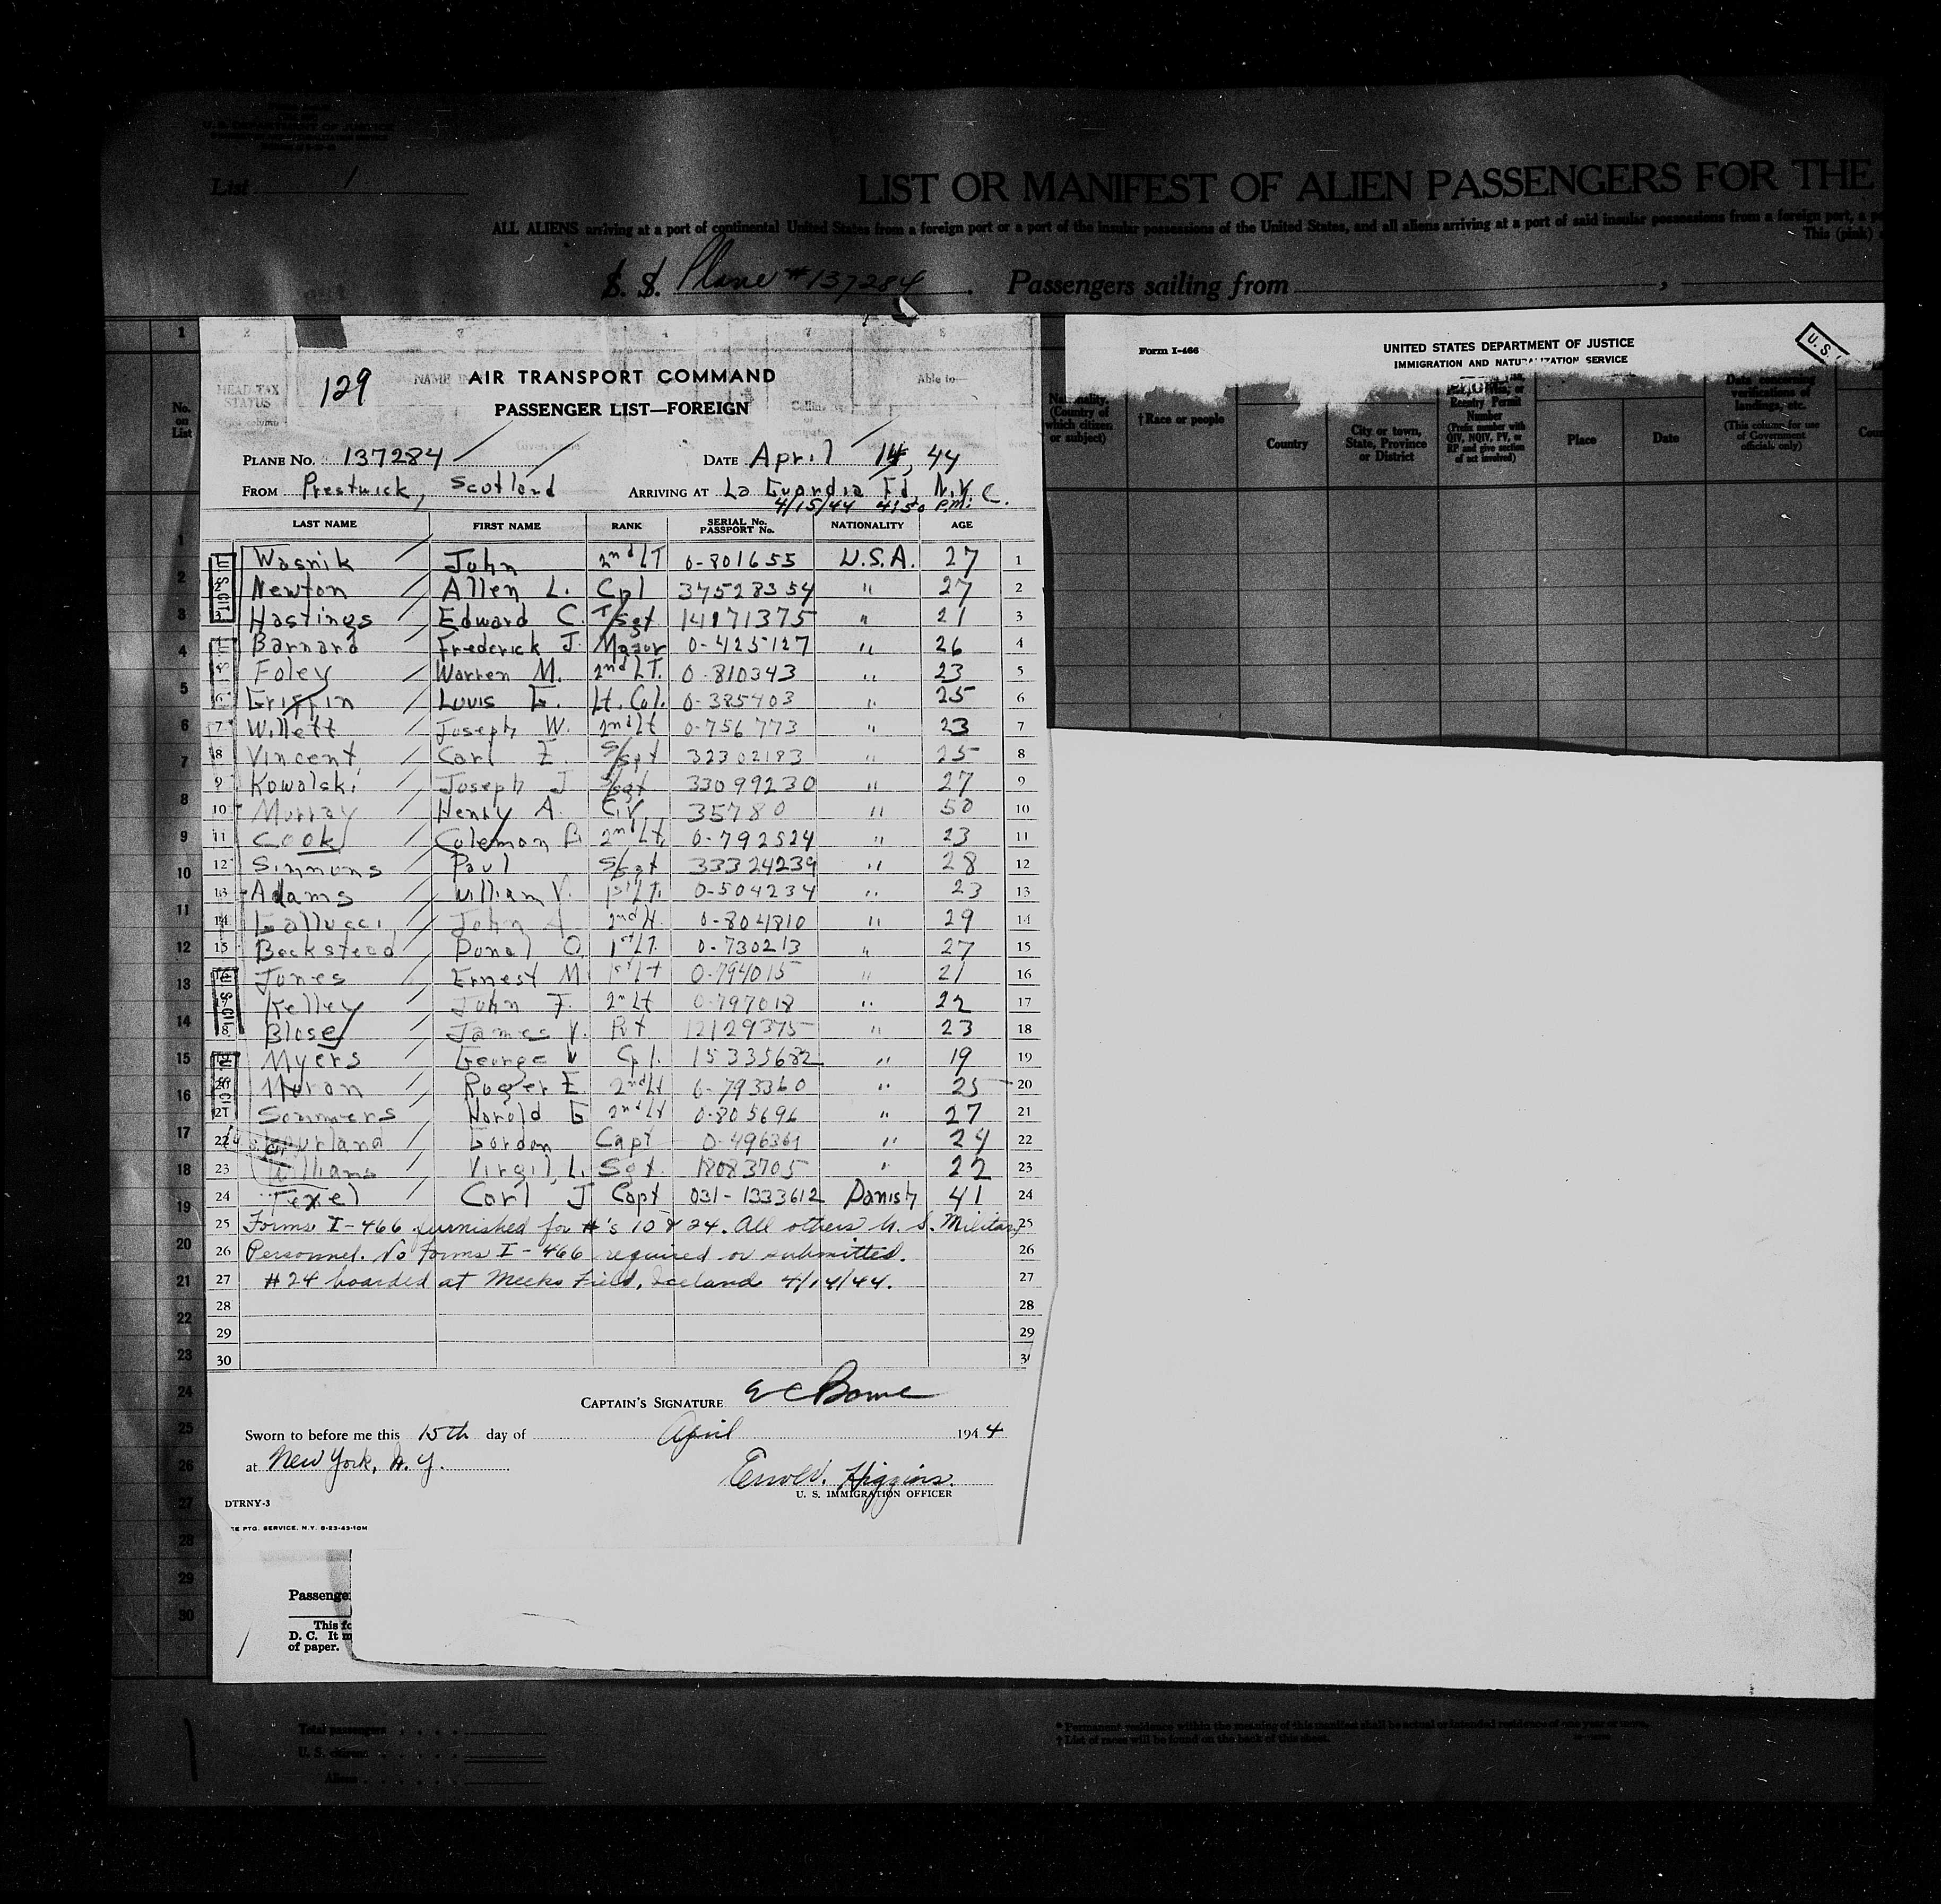 U. S. DEPARTMENT OF JUSTICE
List 1
LIST OR MANIFEST OF ALIEN PASSENGERS FOR THE
ALL ALIENS arriving at a port of continental United States from a foreign port or a port of the insular possessions of the United States, and all aliens arriving at a port of said insular possessions from a foreign port, a
This (pink)
S. S. Plane #137284. Passengers sailing from
Form I-466
UNITED STATES DEPARTMENT OF JUSTICE
IMMIGRATION AND NATURALIZATION SERVICE
U. S.
No. on List
HEAD-TAX STATUS
(Country of which citizen or subject)
†Race or people
Country
City or town, State, Province or District
Reentry Permit Number
(Prefix number with QIV, NQIV, PV, or RP and give section of act involved)
Place
Date
Data concerning verifications of landings, etc.
(This column for use of Government officials only)
129
AIR TRANSPORT COMMAND
PASSENGER LIST—FOREIGN
PLANE NO. 137284 DATE April 14, 44
FROM Prestwick, Scotland ARRIVING AT La Guardia Fd. N.Y.C.
4/15/44 4:50 P.M.
LAST NAME FIRST NAME RANK SERIAL No. PASSPORT No. NATIONALITY AGE
Wasnik John 2nd LT 0-801655 U.S.A. 27 1
Newton Allen L. Cpl 37528354 " 27 2
Hastings Edward C. T/Sgt 14171375 " 21 3
Barnard Frederick J. Major 0-425127 " 26 4
Foley Warren M. 2nd LT. 0-810343 " 23 5
Griffin Louis G. Lt. Col. 0-385403 " 25 6
7 Willett Joseph W. 2nd Lt 0-756773 " 23 7
8 Vincent Carl E. S/Sgt 32302183 " 25 8
9 Kowalski Joseph J S/Sgt 33099230 " 27 9
10 Murray Henry A. Civ. 35780 " 50 10
11 Cook Coleman B. 2nd Lt. 0-792524 " 23 11
12 Simmons Paul S/Sgt 33324239 " 28 12
13 Adams William V. 1st LT. 0-504234 " 23 13
14 Gallucci John A 2nd Lt. 0-804810 " 29 14
15 Beckstead Donal O. 1st LT. 0-730213 " 27 15
Jones Ernest M 1st Lt 0-794015 " 21 16
Kelley John F. 2nd Lt 0-797018 " 22 17
Blose James V. Pvt 12129375 " 23 18
Myers George W Cpl. 15335682 " 19 19
Roger E 2nd Lt 0-793360 " 25 20
21 Sommers Harold G 2nd Lt 0-805696 " 27 21
22 Gordon Capt 0-496369 " 24 22
23 Williams Virgil L. Sgt. 18083705 " 22 23
24 Texel Carl J Capt 031-1333612 Danish 41 24
25 Forms I-466 furnished for #'s 10 & 24. All others U. S. Military 25
26 Personnel. No forms I-466 required or submitted. 26
27 #24 boarded at Meeks Field, Iceland 4/14/44. 27
28 28
29 29
30
CAPTAIN'S SIGNATURE
Sworn to before me this 15th day of April 1944
at New York, N.Y.
Higgins.
U. S. IMMIGRATION OFFICER
DTRNY-3
PTG. SERVICE, N.Y. 8-23-43-10M
Passenge
This fo
D. C. It m
of paper.
Total passengers
U. S. citizens
Aliens
* Permanent residence within the meaning of this manifest shall be actual or intended residence of one year or more.
† List of races will be found on the back of this sheet.